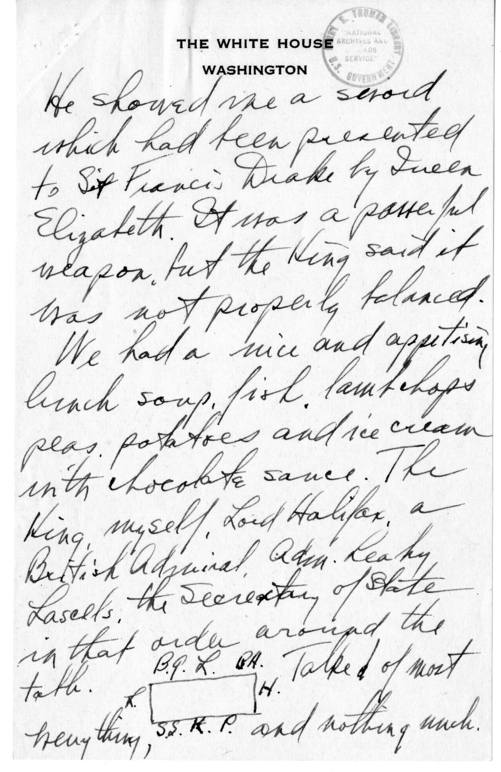 THE WHITE HOUSE
WASHINGTON
HARRY S. TRUMAN LIBRARY
"NATIONAL
ARCHIVES AND
RECORDS
SERVICE"
U.S. GOVERNMENT
He showed me a sword
which had been presented
to Sir Francis Drake by Queen
Elizabeth. It was a powerful
weapon, but the King said it
was not properly balanced.
We had a nice and appetising
lunch soup, fish, lamb chops
peas, potatoes and ice cream
with chocolate sauce. The
King, myself, Lord Halifax, a
British Admiral, Adm. Leahy
Lascells, the Secretary of State
in that order around the
table. Talked of most
B.A. L. H.
S.S. K. P.
everything, and nothing much.